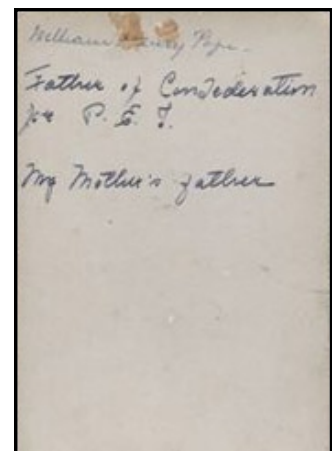 William Henry Pope.
Father of Confederation
for P. E. I.
My Mother's father